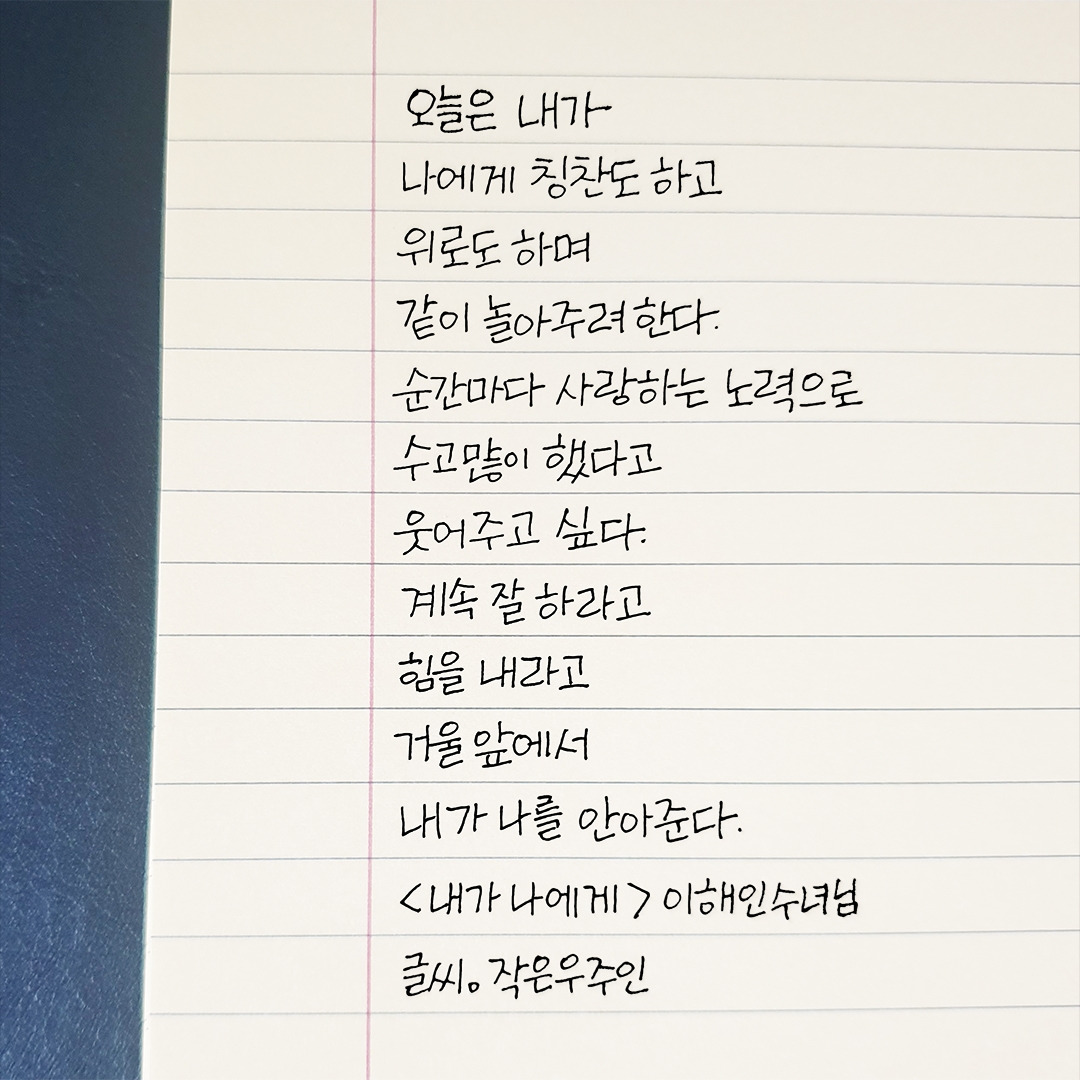 오늘은 내가
나에게 칭찬도 하고
위로도 하며
같이 놀아주려 한다.
순간마다 사랑하는 노력으로
수고많이 했다고
웃어주고 싶다.
계속 잘 하라고
힘을 내라고
거울 앞에서
내가 나를 안아준다.
<내가 나에게> 이해인수녀님
글씨。작은우주인